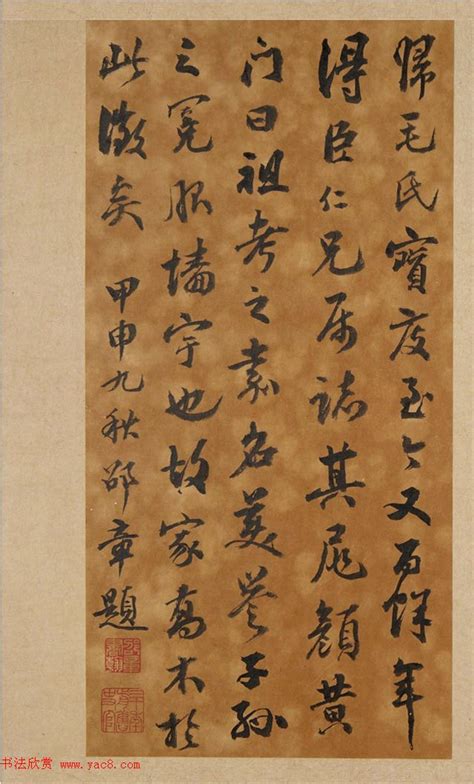 歸毛氏寶庋至今又百餘年
得臣仁兄属誌其尾顏黃
門曰祖考之嘉名美譽子孫
之冕服墻宇也故家喬木於
此徵矣 甲申九秋邵章題
书法欣赏 www.yac8.com